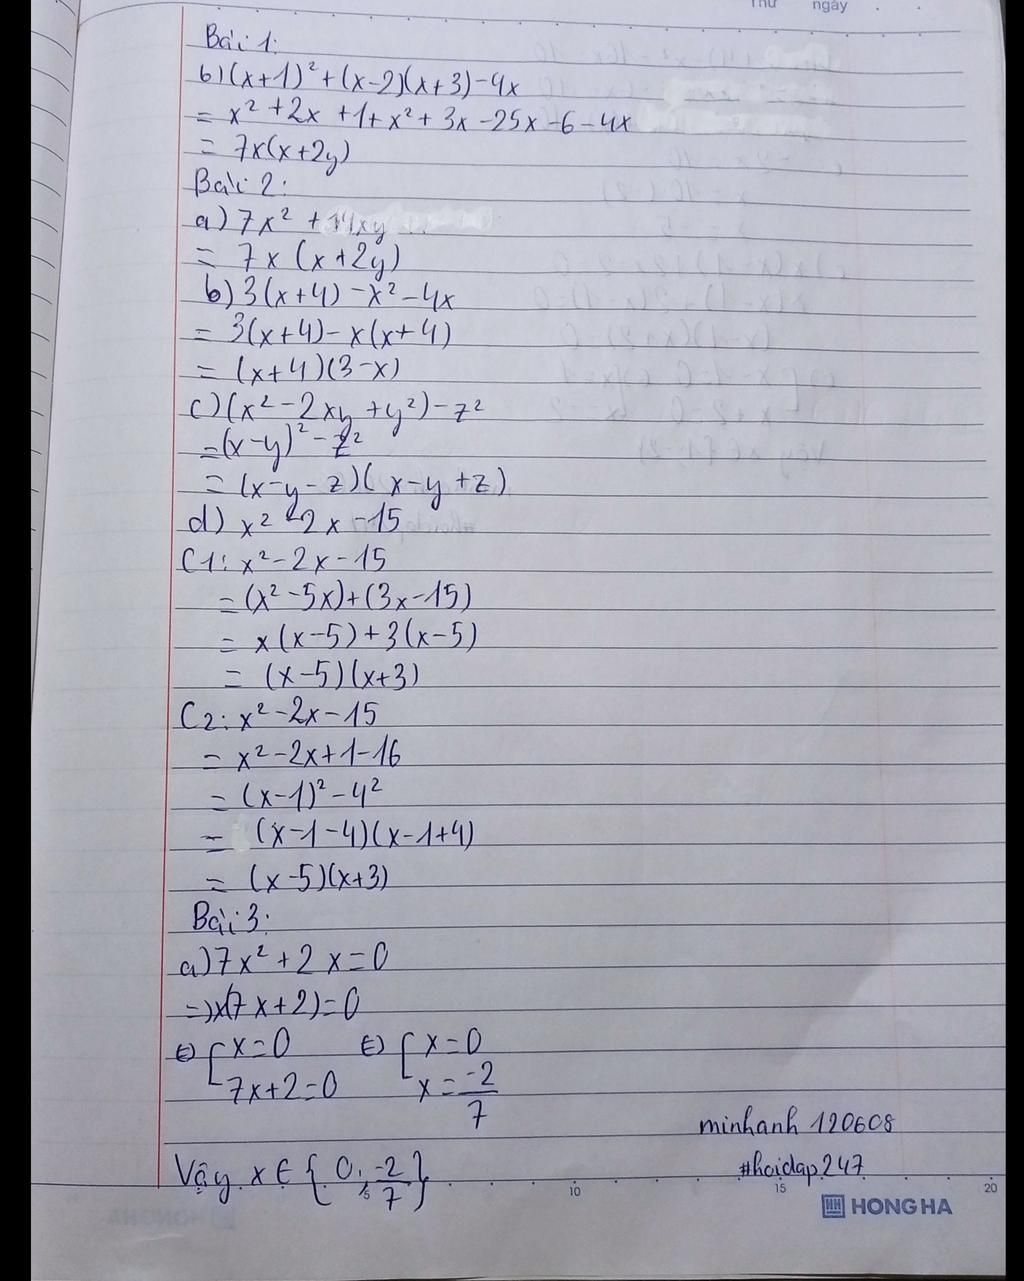 Thứ ngày
Bài 1:
b) (x+1)² + (x-2)(x+3) - 4x
= x² + 2x + 1 + x² + 3x - 25x - 6 - 4x
= 7x(x+2y)
Bài 2:
a) 7x² + 14xy
= 7x (x+2y)
b) 3(x+4) - x² - 4x
= 3(x+4) - x(x+4)
= (x+4)(3-x)
c) (x² - 2xy + y²) - z²
= (x-y)² - z²
= (x-y-z)(x-y+z)
d) x² - 2x - 15
C1: x² - 2x - 15
= (x² - 5x) + (3x - 15)
= x(x-5) + 3(x-5)
= (x-5)(x+3)
C2: x² - 2x - 15
= x² - 2x + 1 - 16
= (x-1)² - 4²
= (x-1-4)(x-1+4)
= (x-5)(x+3)
Bài 3:
a) 7x² + 2x = 0
=> x(7x+2) = 0
⇔ [ x = 0 ⇔ [ x = 0
7x+2 = 0 x = -2/7
minhanh 120608
Vậy x ∈ {0; -2/7}
#hoidap247
5 10 15 20
HONG HA